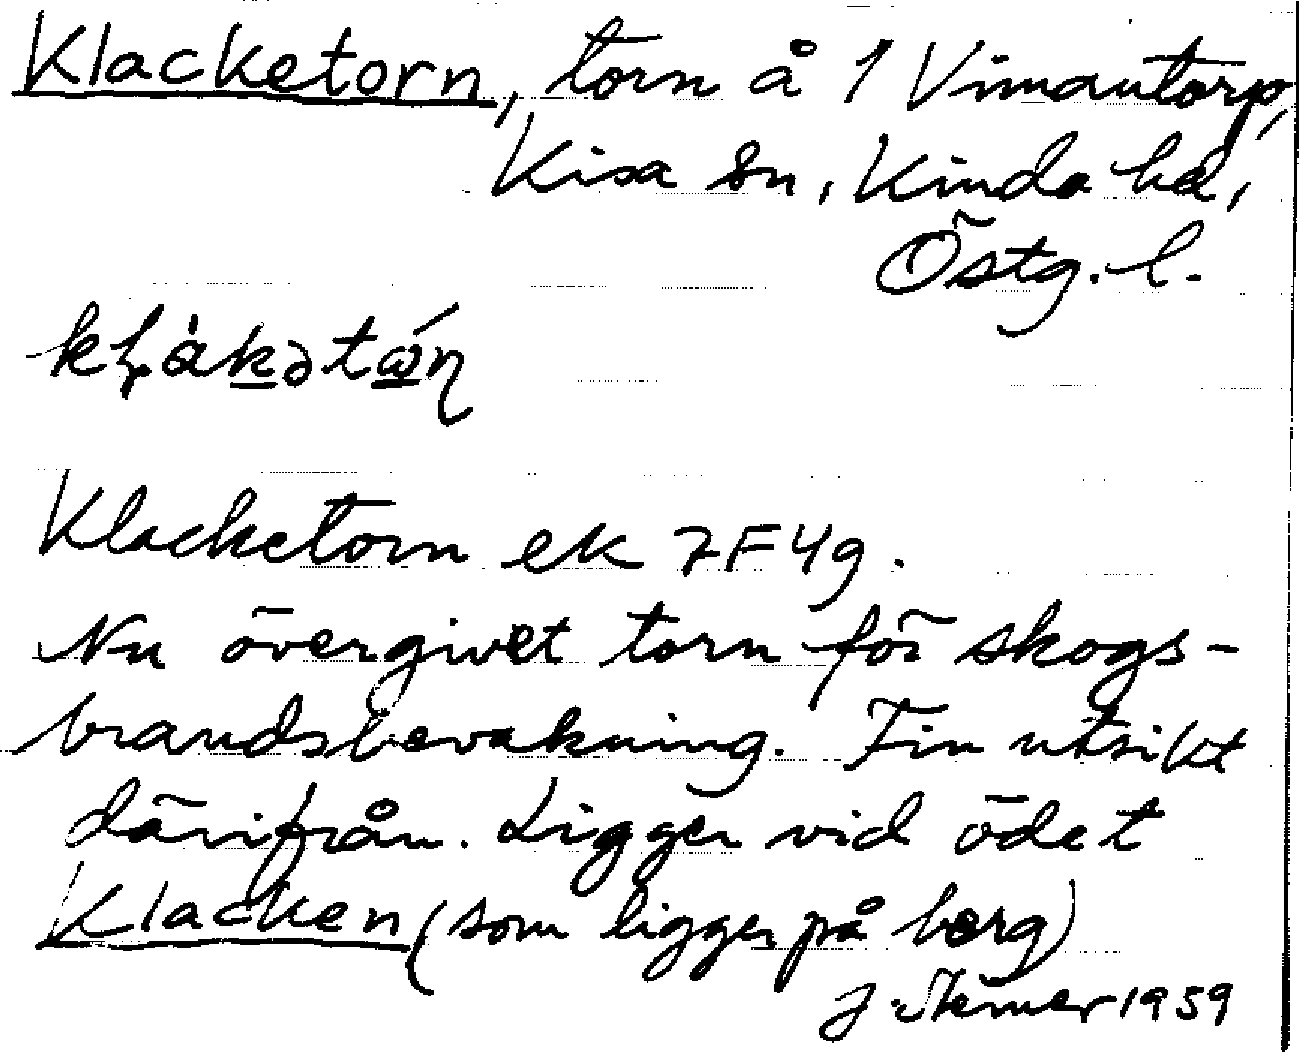 Klacketorn, torn å 1 Vimautorp,
Kisa sn, Kinda hd,
Östg. l.
Klacketorn ek 7F4g.
Nu övergivet torn för skogs-
brandsbevakning. Fin utsikt
därifrån. Ligger vid ödet
Klacken (som ligger på berg)
1959